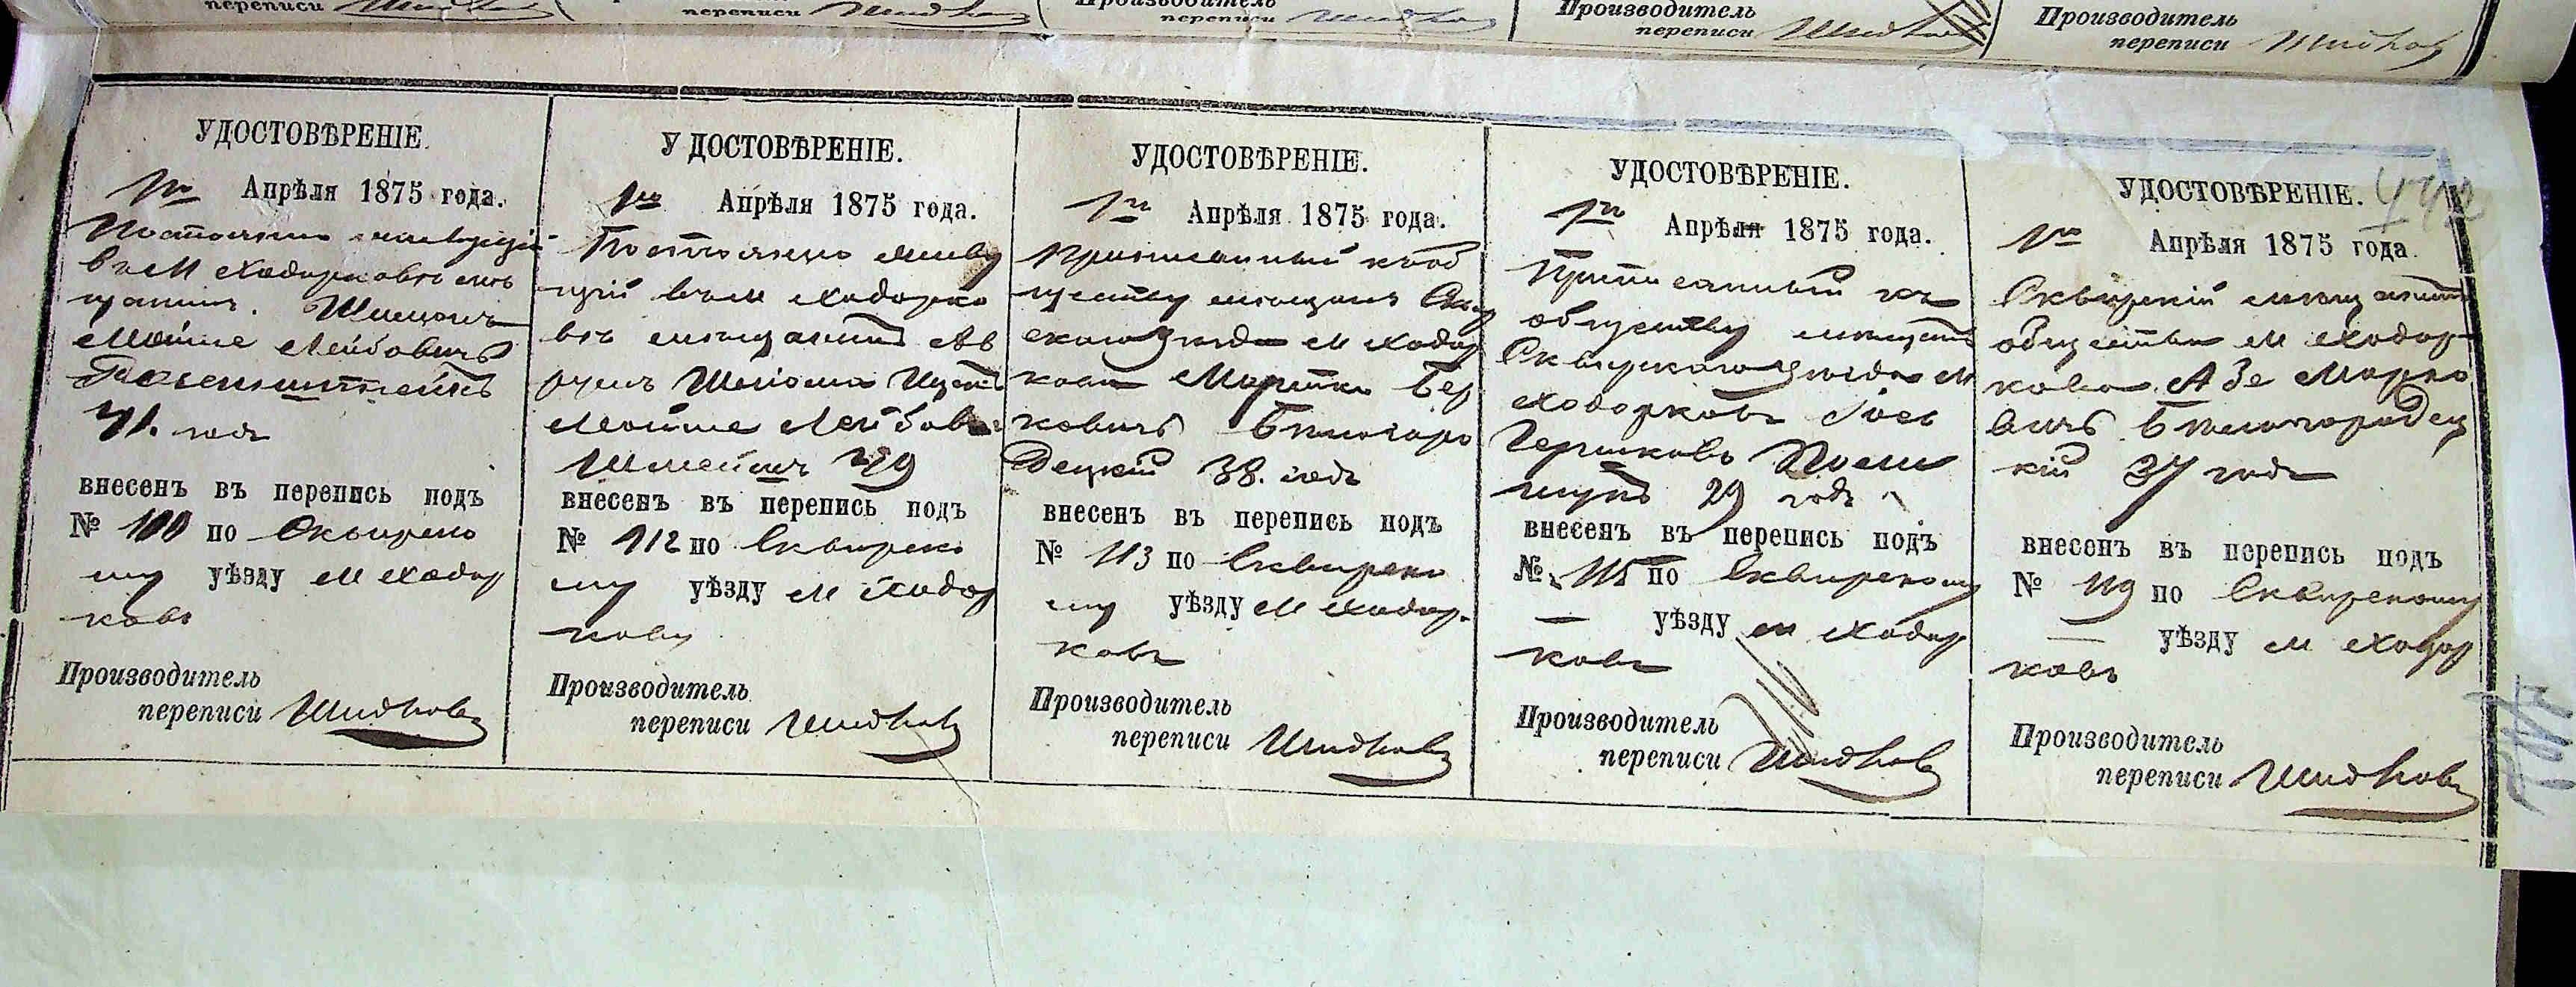 переписи
переписи
Производитель
переписи
Производитель
переписи
Производитель
переписи
УДОСТОВѢРЕНІЕ.
1го Апрѣля 1875 года.
Постоянно живущій
въ м Ходорковѣ мѣ
щанинъ. Шимонъ
Мойше Лейбовичъ
71. годъ
внесенъ въ перепись подъ
№ 100 по Сквирско
му уѣзду м Ходор
ковъ
Производитель
переписи
УДОСТОВѢРЕНІЕ.
1го Апрѣля 1875 года.
Постоянно живу
щій въ м Ходорко
вѣ мѣщанинъ Ав
румъ Шлiома Ицко
Мойше Лейбов
29
внесенъ въ перепись подъ
№ 112 по Сквирско
му уѣзду м Ходор
кову
Производитель
переписи
УДОСТОВѢРЕНІЕ.
1го Апрѣля 1875 года.
Приписанный къ об
ществу мѣщанъ Сквир
скаго уѣзда м Ходор
кова Мортко Бер
ковичъ Бѣлогоро
децкій 38. годъ
внесенъ въ перепись подъ
№ 113 по Сквирско
му уѣзду м Ходор
ковъ
Производитель
переписи
УДОСТОВѢРЕНІЕ.
1го Апрѣля 1875 года.
Приписанный къ
обществу мѣщанъ
Сквирскаго уѣзда м
Ходорковъ Іось
Гершковъ
29 годъ
внесенъ въ перепись подъ
№ 115 по Сквирскому
— уѣзду м Ходор
ковъ
Производитель
переписи
УДОСТОВѢРЕНІЕ.
1го Апрѣля 1875 года.
Сквирскій мѣщанинъ
общества м Ходор
кова Азе Марко
вичъ Бѣлогородец
кій 37 годъ
внесенъ въ перепись подъ
№ 119 по Сквирскому
— уѣзду м Ходор
ковъ
Производитель
переписи